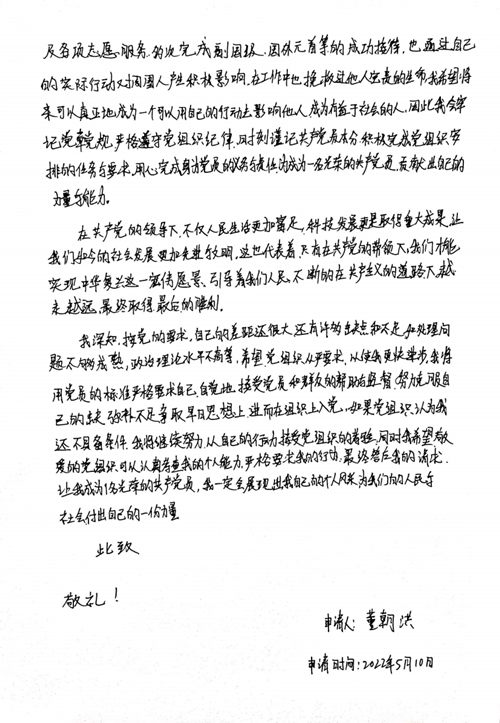 及各项志愿服务,多次完成副国级、国外元首等的成功接待,也通过自己
的实际行动对周围人产生积极影响,在工作中也挽救过他人宝贵的生命,我希望将
来可以真正地成为一个可以用自己的行动去影响他人成为有益于社会的人,因此我会牢
记党章党规,严格遵守党组织纪律,时刻谨记共产党员本分,积极完成党组织安
排的任务与要求,用心完成身为党员的义务与责任,为成为一名光荣的共产党员,贡献出自己的
力量与能力。
在共产党的领导下,不仅人民生活更加富足,科技发展更是取得重大成果,让
我们如今的社会发展更加先进与文明,这也代表着,只有在共产党的带领下,我们才能
实现中华复兴这一宏伟愿景,引导着我们人民,不断的在共产主义的道路下,越
走越远,最终取得最后的胜利。
我深知,按党的要求,自己的差距还很大,还有许多缺点和不足,如处理问
题不够成熟,政治理论水平不高等,希望党组织从严要求,以使我更快进步,我将
用党员的标准严格要求自己,自觉地接受党员和群众的帮助与监督,努力克服自
己的缺点弥补不足,争取早日思想上,进而在组织上入党,如果党组织认为我
还不具备条件,我将继续努力,从自己的行动接受党组织的考验,同时我希望敬
爱的党组织可以认真考查我的个人能力,严格要求我的行动,最终答应我的请求,
让我成为1名光荣的共产党员,我一定会展现出我自己的个人风采,为我们的人民与
社会付出自己的一份力量
此致
敬礼!
申请人:董朝洪
申请时间:2022年5月10日